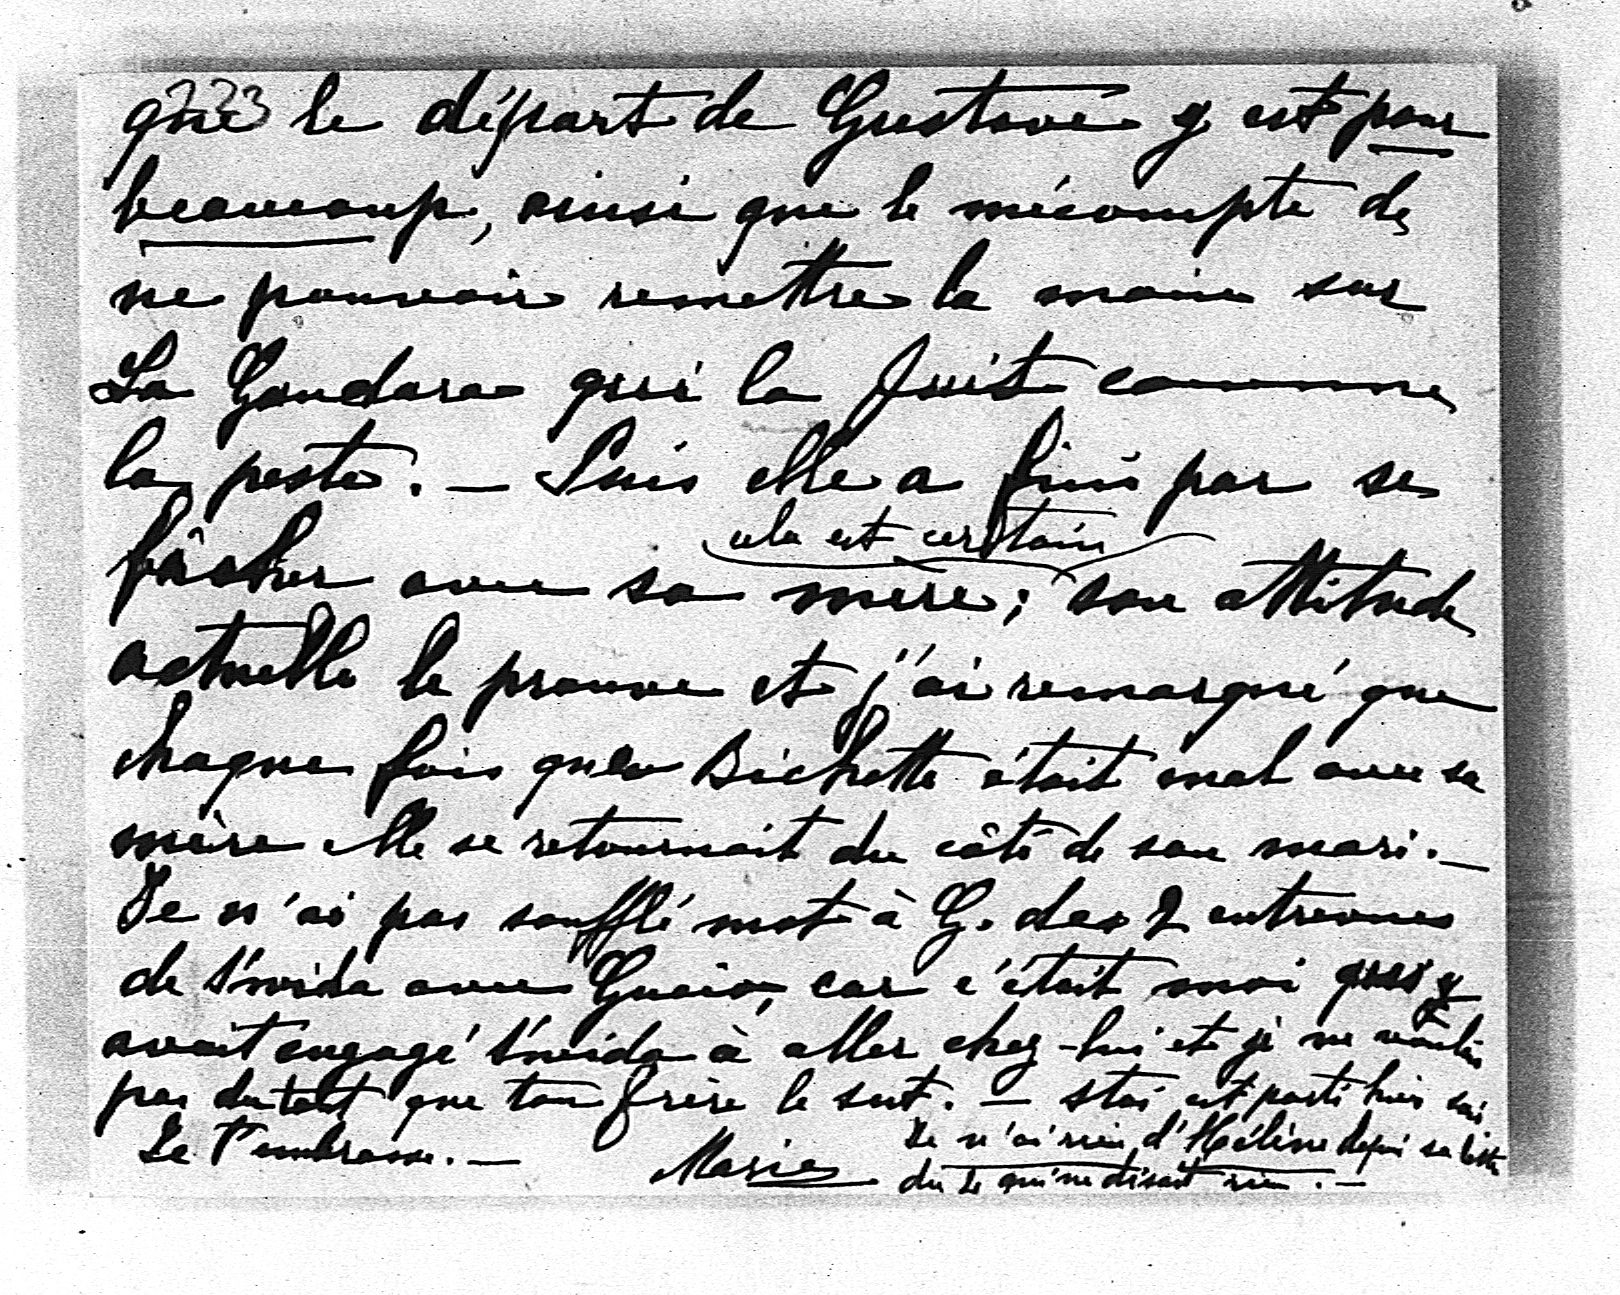 223
que le départ de Gustave y est pour
beaucoup, ainsi que le mécompte de
ne pouvoir remettre la main sur
La Gandara qui la fuit comme
la peste. — Puis elle a fini par se
cela est certain
fâcher avec sa mère; son attitude
actuelle le prouve et j'ai remarqué que
chaque fois que Bichette était mal avec sa
mère elle se retournait du côté de son mari. —
Je n'ai pas soufflé mot à G. des 2 entrevues
de avec car c'était moi qui y
avait engagé à aller chez-lui et je ne voulais
pas du tout que ton frère le sut. — est parti hier soir
Je t'embrasse. —
Marie
Je n'ai rien d'Hélène depuis sa lettre
du qui ne disait rien. —